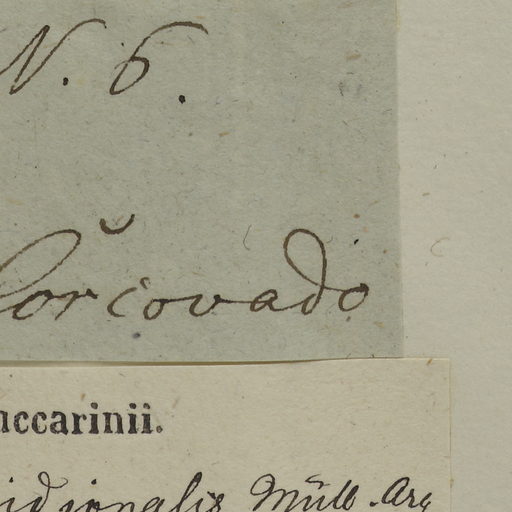 N. 6.
Corcovado
uccarinii.
idionalis Müll. Arg